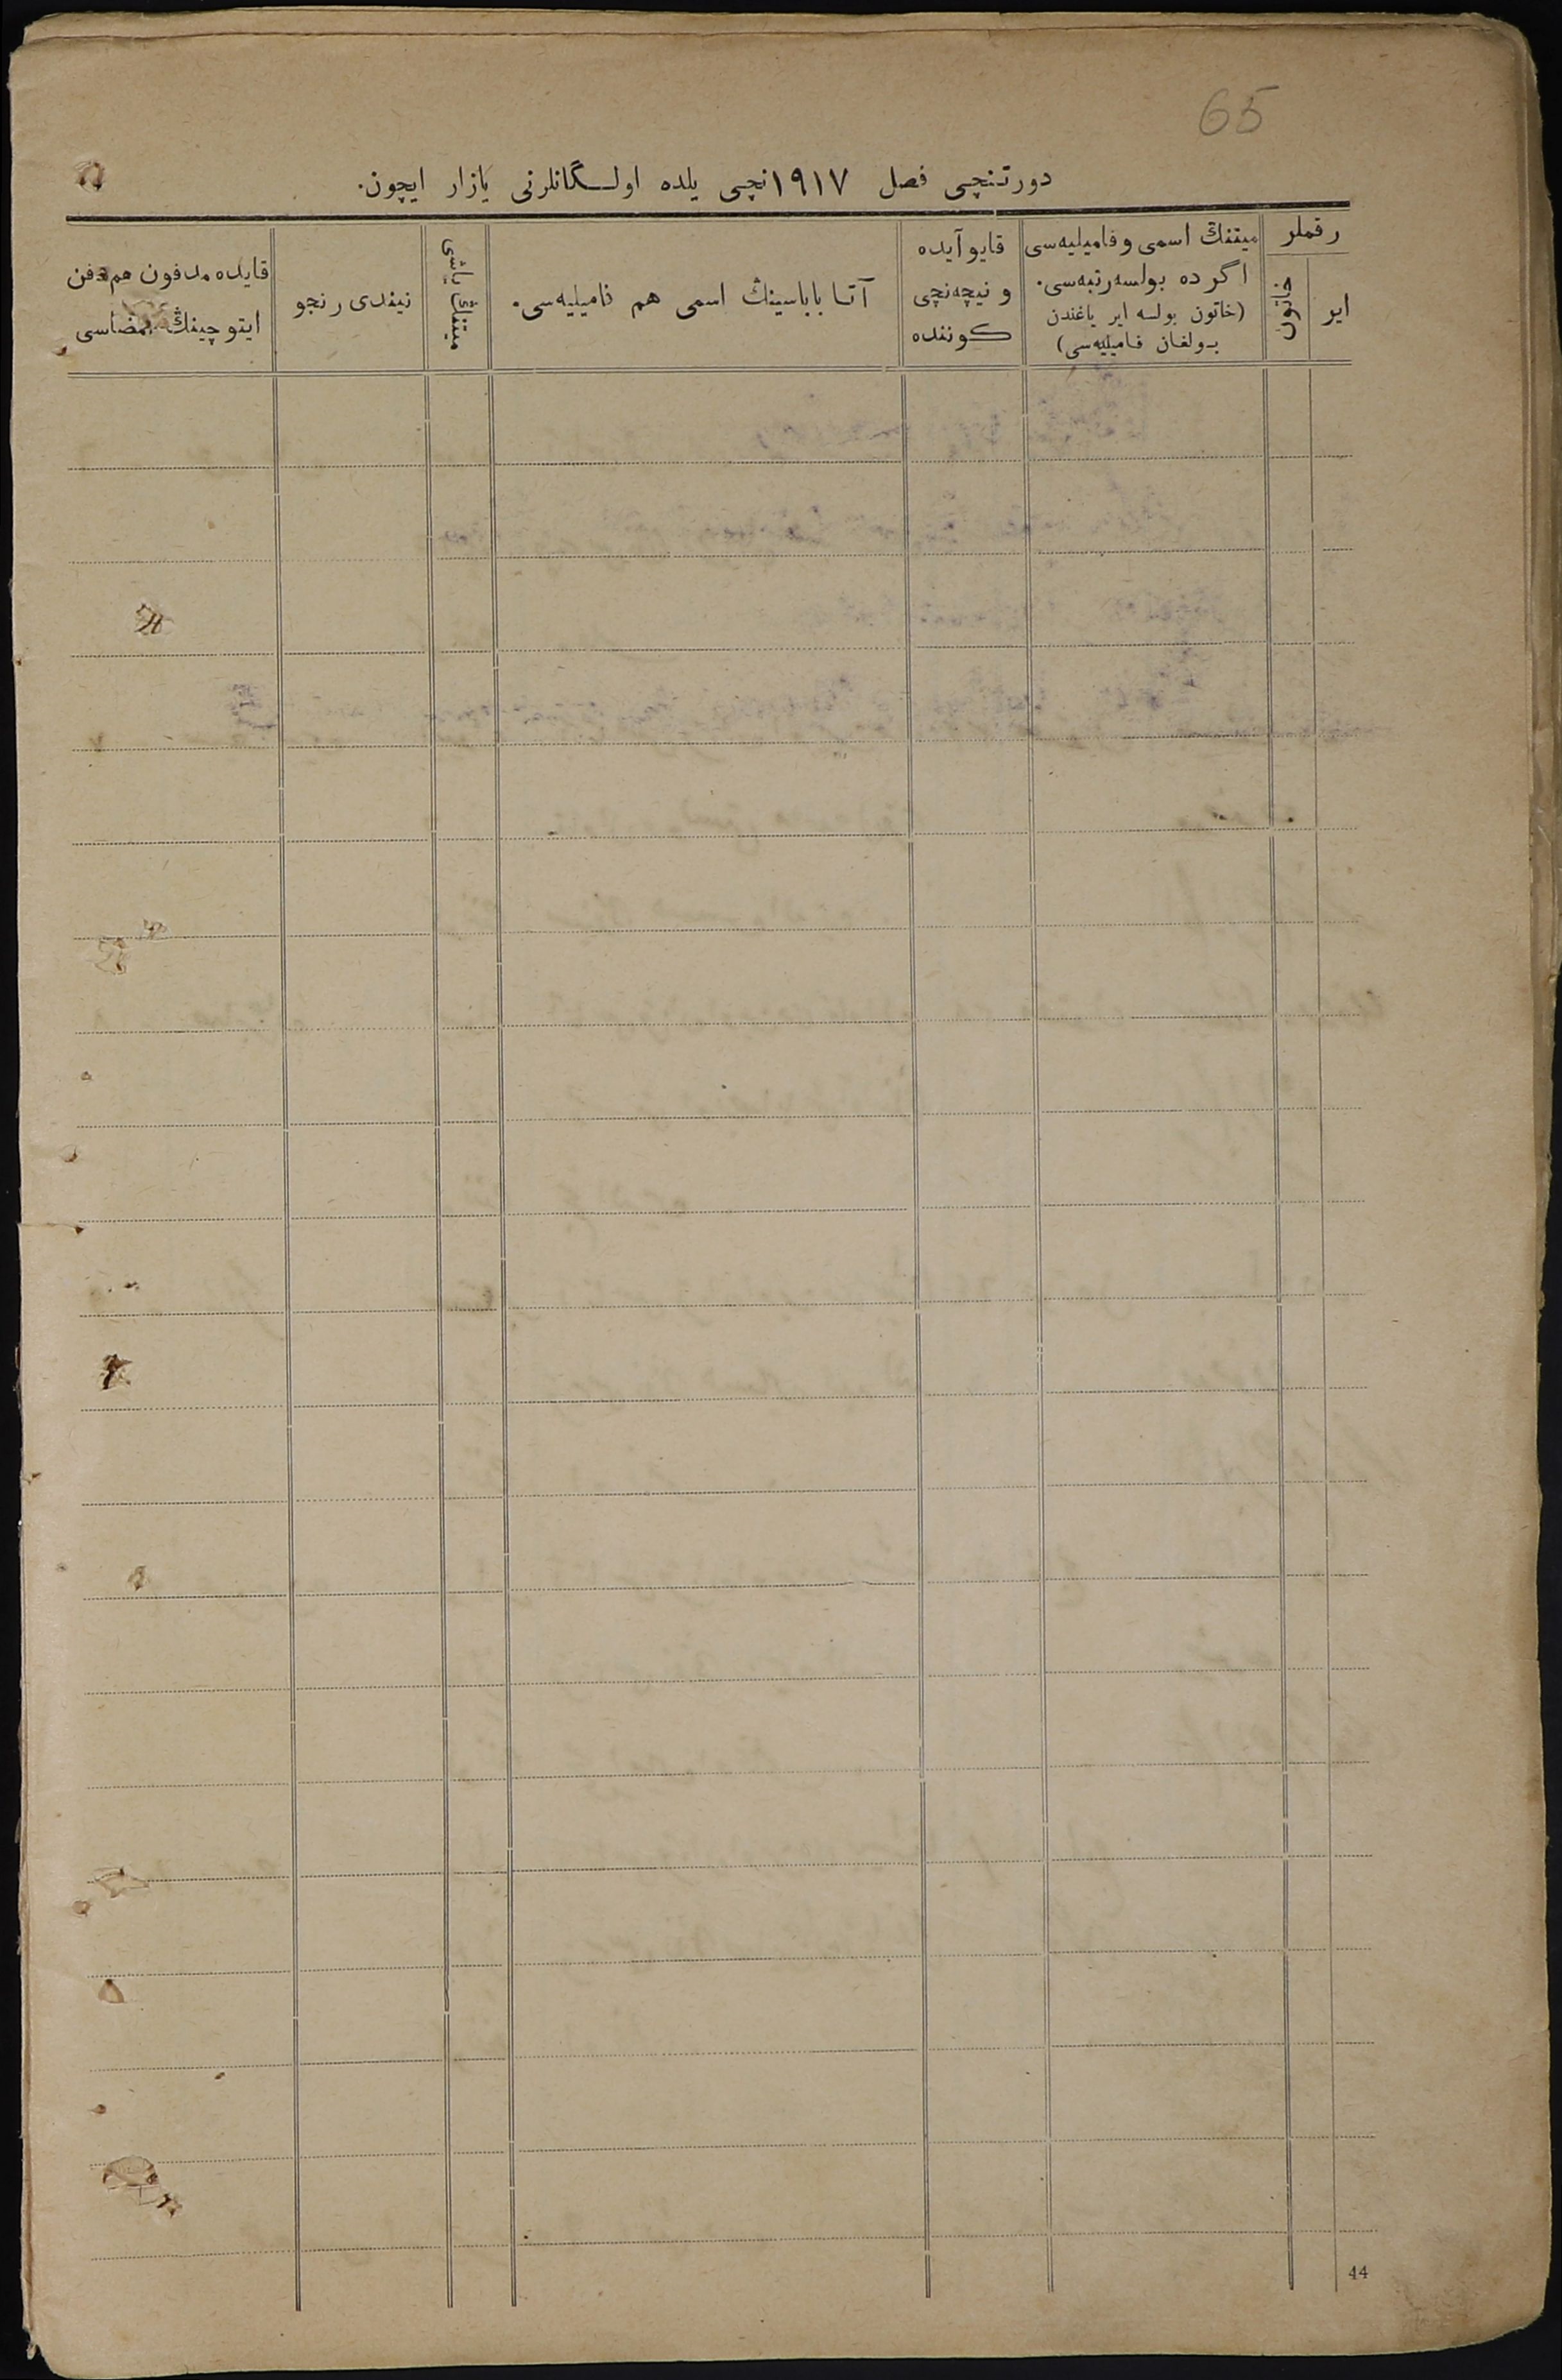 65
دورتنچی فصل ۱۹۱۷نچی یلده اولـگانلرنی یازار ایچون.
رقملر
ایر
خاتون
میتنڭ اسمی و فامیلیه‌سی
اگر ده بولسه رتبه‌سی.
(خاتون بولسه ایر یاغندن
بولغان فامیلیه‌سی)
قایو آیده
و نیچه‌نچی
کوننده
آتا باباسینڭ اسمی هم فامیلیه‌سی.
میتنڭ یاشی
نیندی رنجو
قایده مدفون هم دفن
ایتوچینڭ امضاسی
44